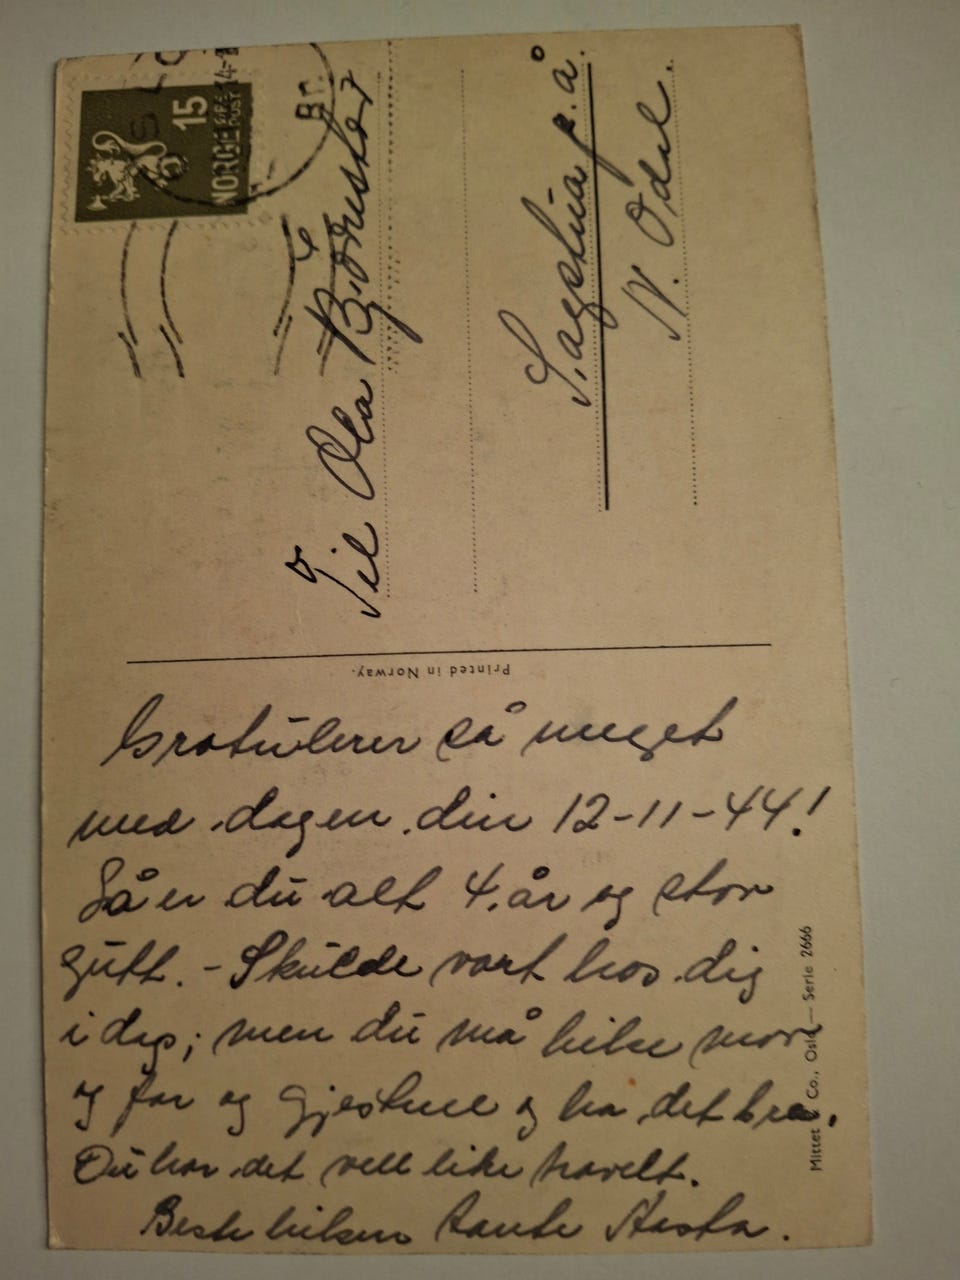 Gratulerer så meget
med dagen din 12-11-44!
Så er du alt 4 år og stor
gutt. - Skulde vært hos dig
i dag; men du må hilse mor
og far og gjestene og ha det bra.
Du har det vell like travelt.
Beste hilsen tante Aasta.
Printed in Norway.
Mittet & Co., Oslo — Serie 2666
NORGE
15
OFF. POST
OSLO
Br.
Til Ola Bjørnstad
Sagstua p.å.
N. Odal.